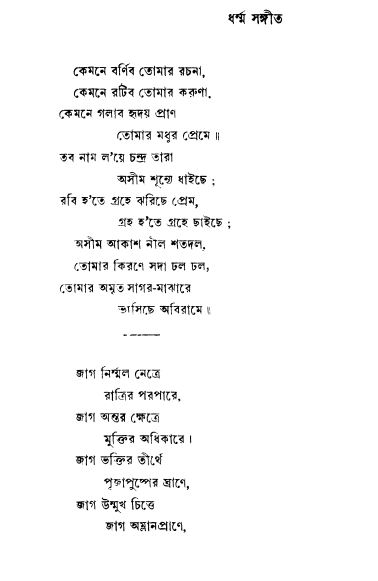 ধর্ম্ম সঙ্গীত
কেমনে বর্ণিব তোমার রচনা,
কেমনে রটিব তোমার করুণা,
কেমনে গলাব হৃদয় প্রাণ
তোমার মধুর প্রেমে॥
তব নাম ল'য়ে চন্দ্র তারা
অসীম শূন্যে ধাইছে;
রবি হ'তে গ্রহে ঝরিছে প্রেম,
গ্রহ হ'তে গ্রহে ছাইছে;
অসীম আকাশ নীল শতদল,
তোমার কিরণে সদা ঢল ঢল,
তোমার অমৃত সাগর-মাঝারে
ভাসিছে অবিরামে॥
জাগ নির্ম্মল নেত্রে
রাত্রির পরপারে,
জাগ অন্তর ক্ষেত্রে
মুক্তির অধিকারে।
জাগ ভক্তির তীর্থে
পূজাপুষ্পের ঘ্রাণে,
জাগ উন্মুখ চিত্তে
জাগ অম্লানপ্রাণে,